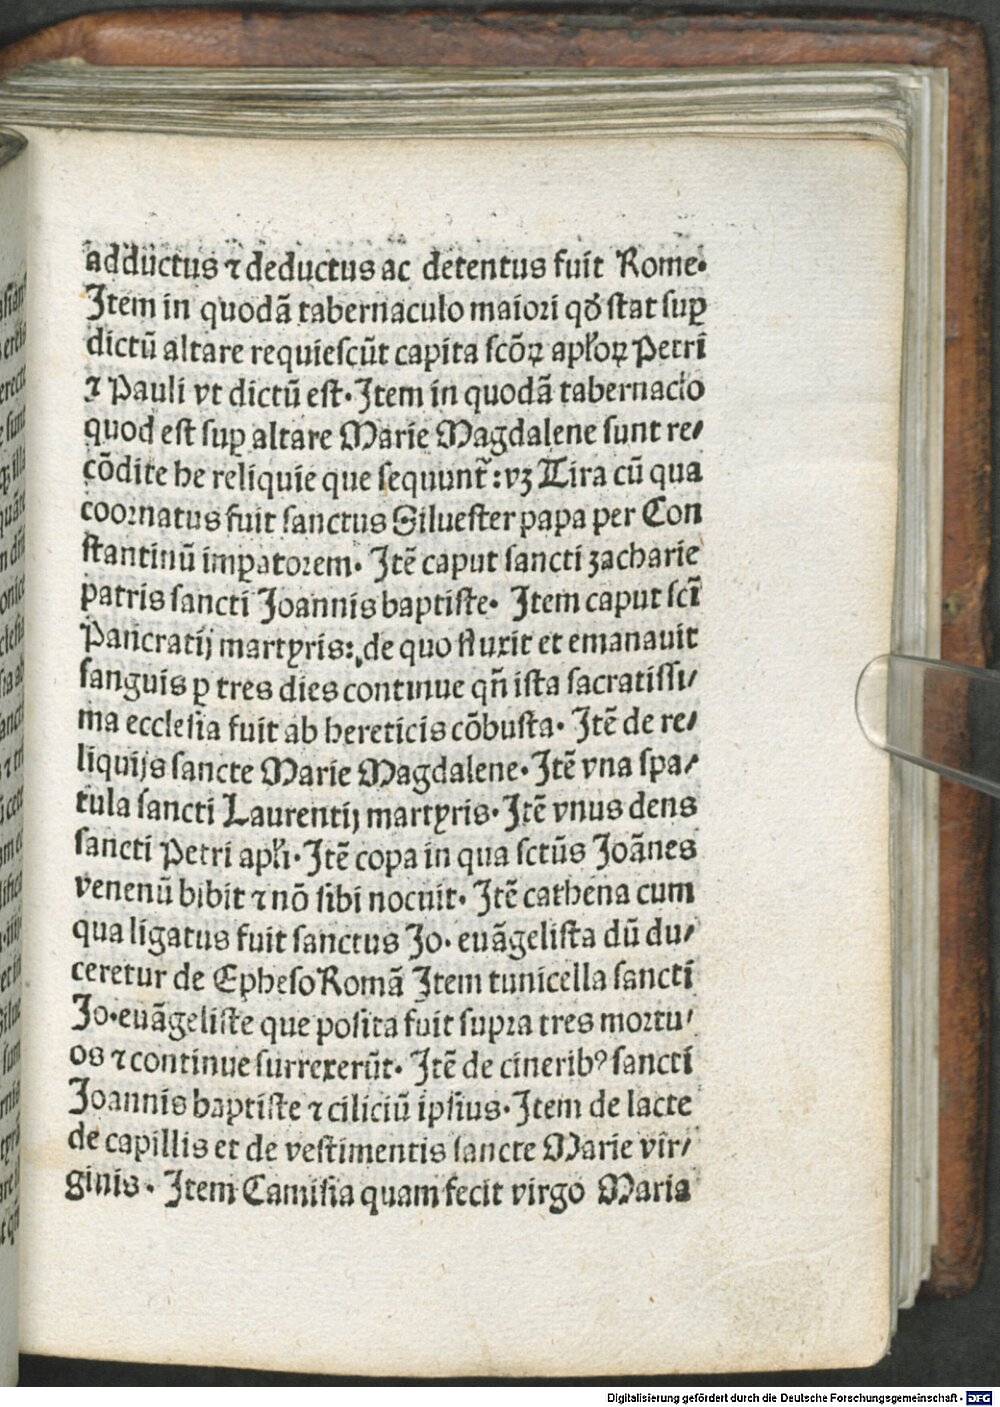 adductus ⁊ deductus ac detentus fuit Rome.
Item in quodã tabernaculo maiori qď stat suꝑ
dictũ altare requiescũt capita scõꝝ apl̃oꝝ Petri
⁊ Pauli vt dictũ est. Item in quodã tabernaclo
quod est suꝑ altare Marie Magdalene sunt re⸗
cõdite he reliquie que sequunt̃: vꝫ Tira cũ qua
coornatus fuit sanctus Siluester papa per Con
stantinũ imꝑatorem. Itẽ caput sancti zacharie
patris sancti Joannis baptiste. Item caput scĩ
Pancratij martyris: de quo fluxit et emanauit
sanguis ꝑ tres dies continue qñ ista sacratissi⸗
ma ecclesia fuit ab hereticis cõbusta. Itẽ de re⸗
liquijs sancte Marie Magdalene. Itẽ vna spa⸗
tula sancti Laurentij martyris. Itẽ vnus dens
sancti Petri apl̃i. Itẽ copa in qua sctũs Joãnes
venenũ bibit ⁊ nõ sibi nocuit. Itẽ cathena cum
qua ligatus fuit sanctus Jo. euãgelista dũ du⸗
ceretur de Epheso Romã Item tunicella sancti
Jo. euãgeliste que posita fuit supra tres mortu⸗
os ⁊ continue surrexerũt. Itẽ de cineribꝰ sancti
Joannis baptiste ⁊ ciliciũ ipsius. Item de lacte
de capillis et de vestimentis sancte Marie vir⸗
ginis. Item Camisia quam fecit virgo Maria
Digitalisierung gefördert durch die Deutsche Forschungsgemeinschaft - DFG